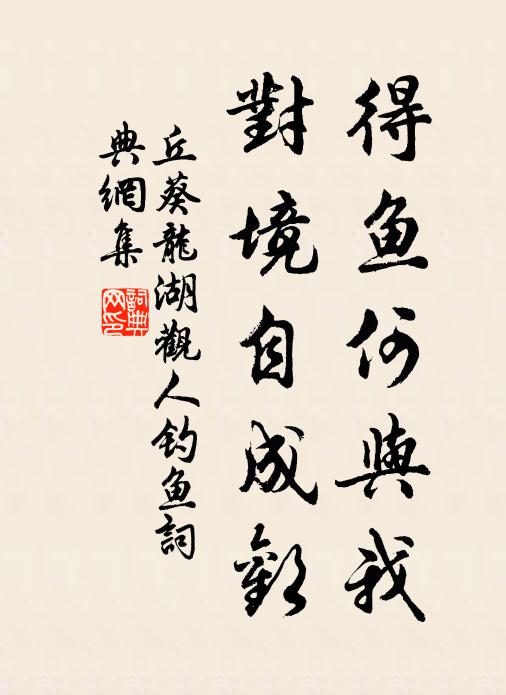 得魚何與我
對境自成歡
丘葵龍湖觀人釣魚詞
典網集
詞典網印